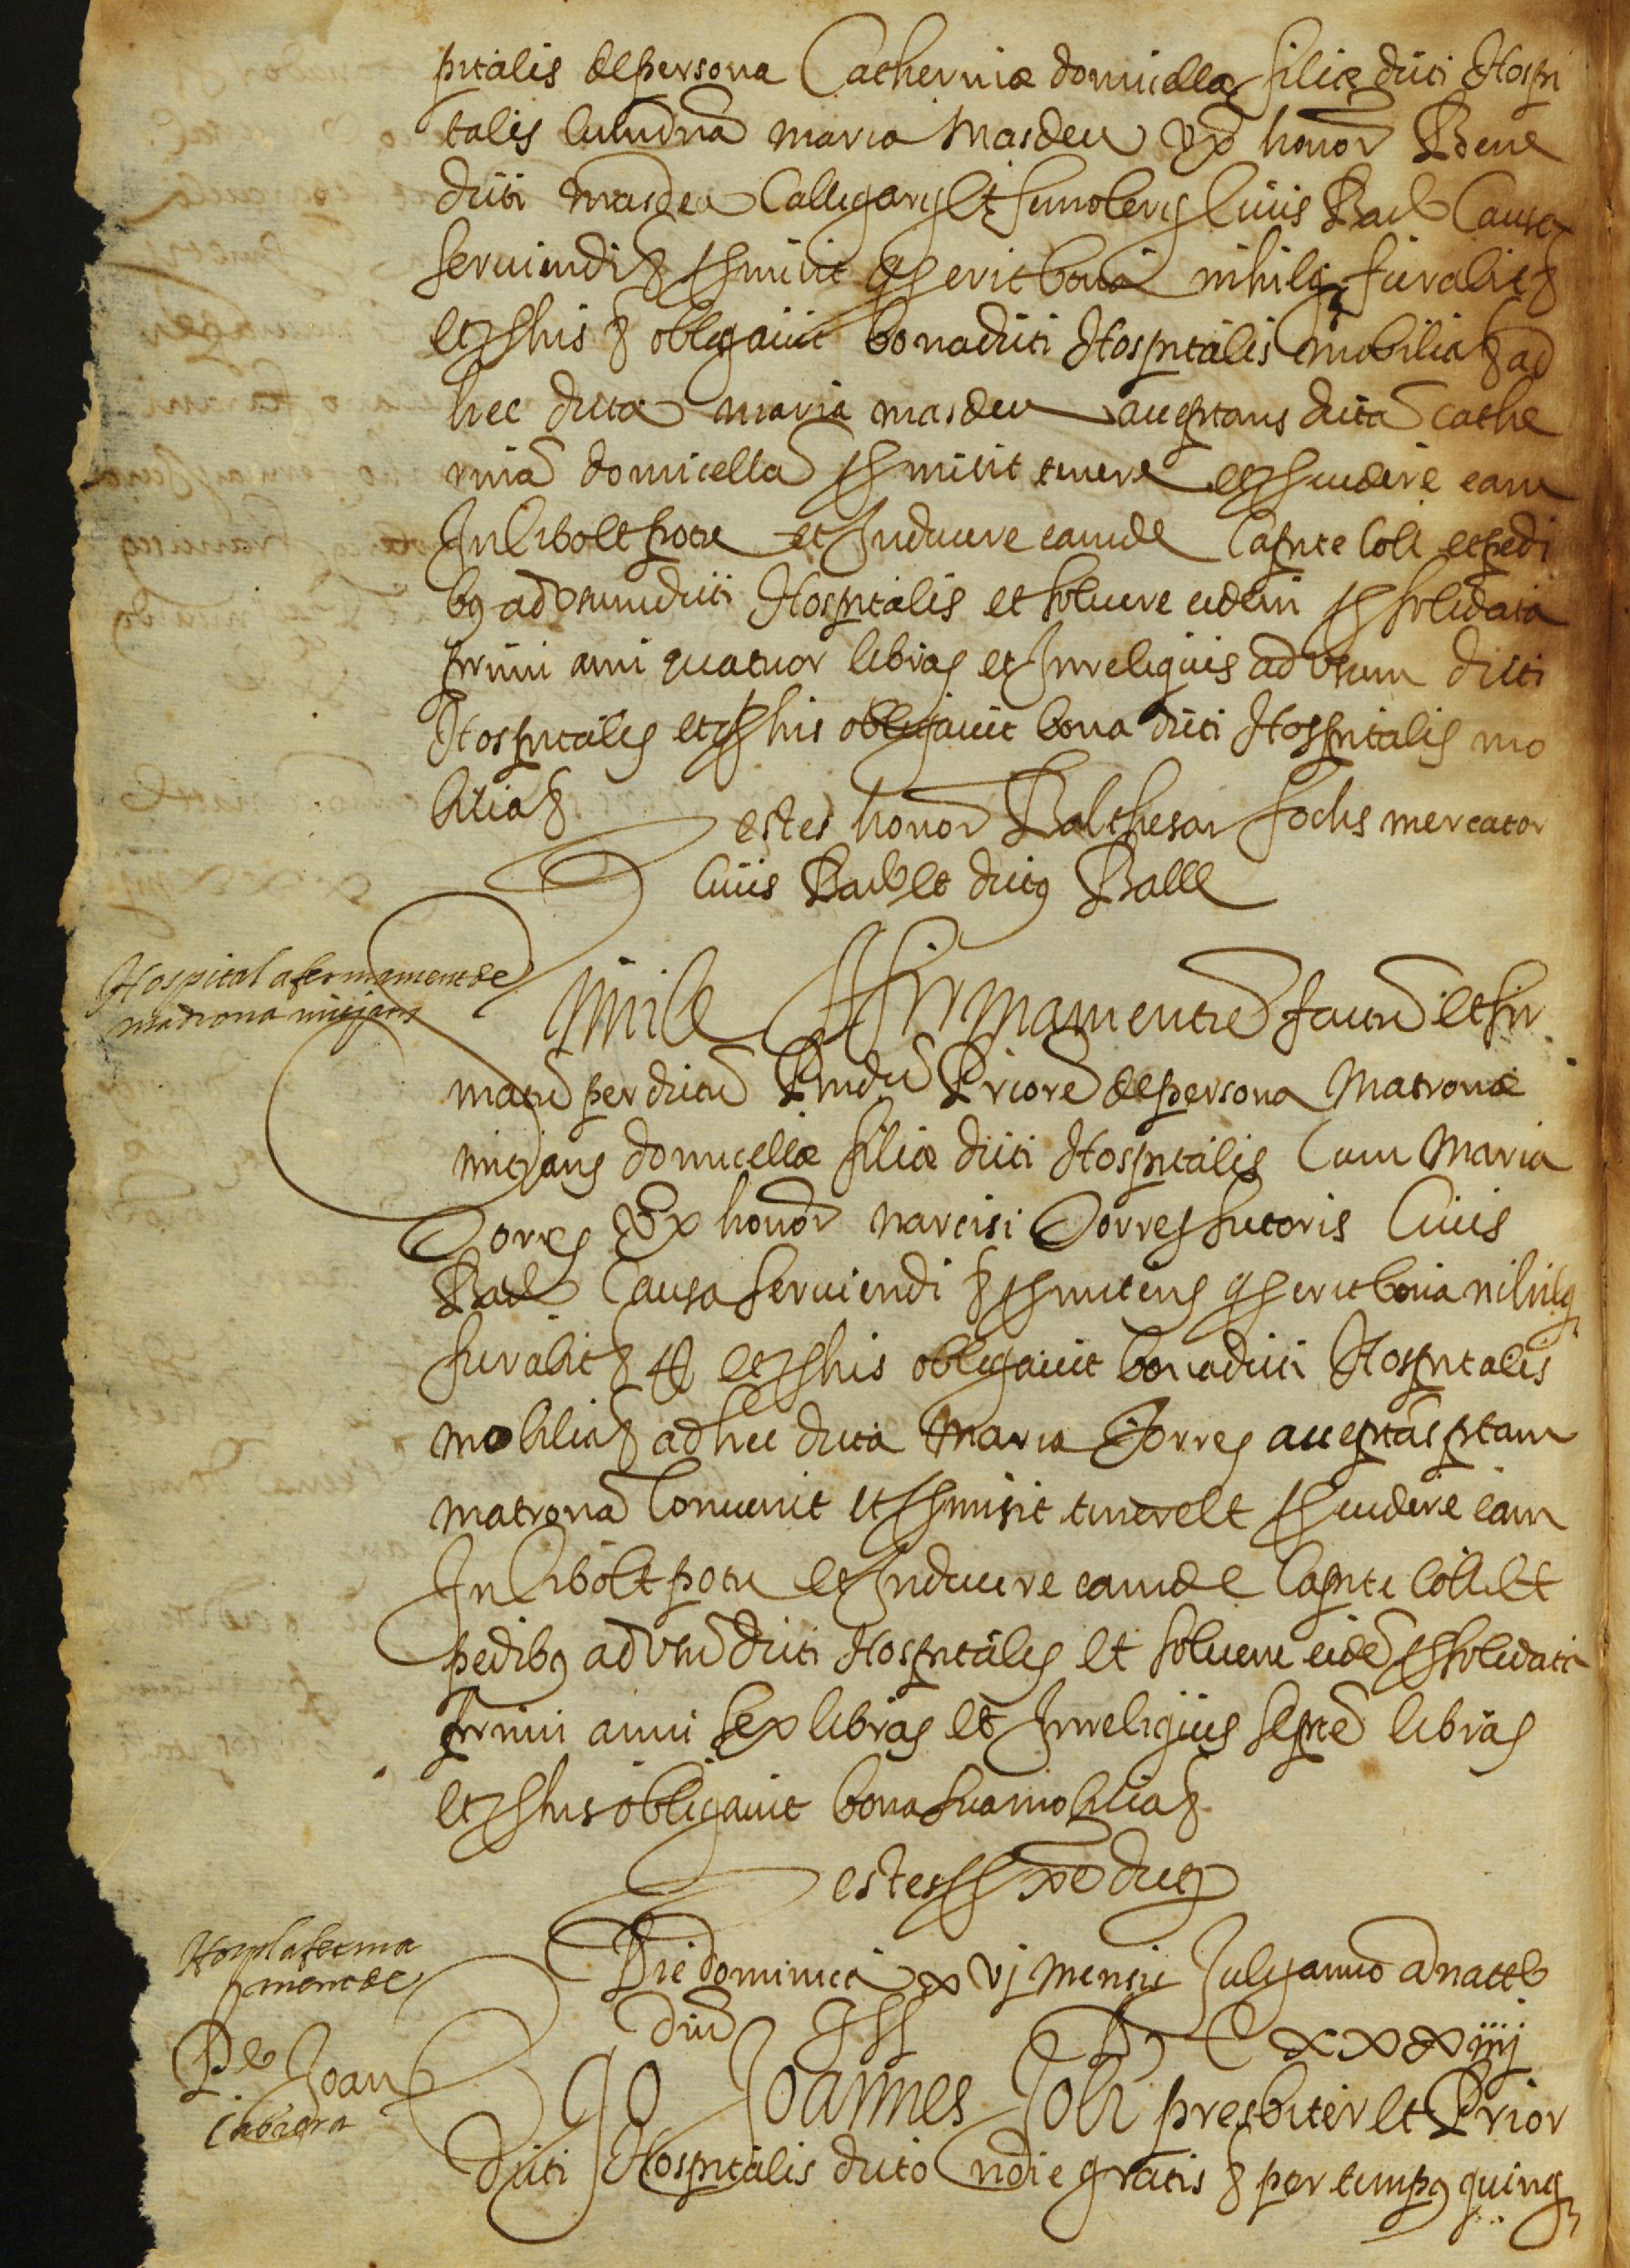 pitalis de persona Catherinæ domicellæ filiæ dicti Hospi
talis cum dna maria Masdeu Vx honor Bene
dicti masdeu Calligarij et sutoleris civis Barc Causa
serviendi & promitit q erit bona nihilq furabit &
et pro his & obligavit bona dicti Hospitalis mobilia & ad
hec dicta maria masdeu acceptans dictā cathe
rinā domicellā promitit tenere et providere eam
In cibo et potu et Inducere eamde Capite coli et pedi
bꝰ ad usum dicti Hospitalis et solvere eidem pro solidata
primi anni quatuor libras et In reliquis ad usum dicti
Hospitalis et pro his obligavit bona dicti Hospitalis mo
bilia &
Testes honor Balthesar fochs mercator
civis Barc et dictꝰ Balle
Hospital afermament de
madrona mitjans
Simile Affirmamentū factū et fir
matū per dictū Rndū Priorē de persona Matronæ
mitjans domicellæ filiæ dicti Hospitalis Cum Maria
Torres Vx honor narcisi Torres sutoris Civis
Barc Causa serviendi & promitens q erit bona nihilq
furabit & et pro his obligavit bona dicti Hospitalis
mobilia & ad hec dicta Maria Torres acceptās ptam
matronā Convenit et promisit tenere et providere eam
In cibo et potu et Inducere eamde Capite coli et
pedibꝰ ad usū dicti Hospitalis et solvere eidē pro solidata
primi anni sex libras et In reliquis septē libras
et pro his obligavit bona sua mobilia &
Testes pxe dicti
Hospl aferma
ment de
Pe Joan
Cabrera
Die dominica xvj mensis Julij anno a natte
dni M D C xxxiiij
Ego Joannes Joli presbiter et Prior
dicti Hospitalis dicto noīe gratis & per tempꝰ quinq